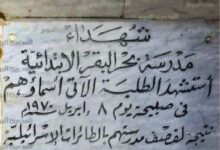 شهداء
مدرسة بحر البقر الابتدائية
استشهد الطلبة الآتي أسماؤهم
في صبيحة يوم ٨ ابريل سنة ١٩٧٠م
نتيجة لقصف مدرستهم بالطائرات الإسرائيلية